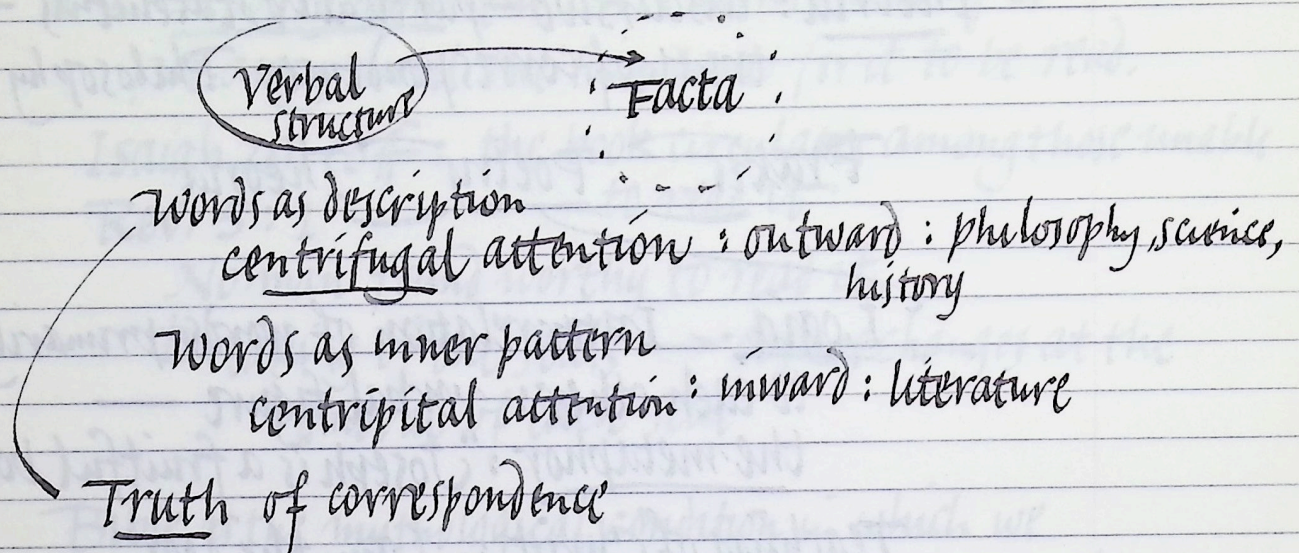 Verbal
structure
Facta
Words as description
centrifugal attention : outward : philosophy, science,
history
Words as inner pattern
centripital attention : inward : literature
Truth of correspondence